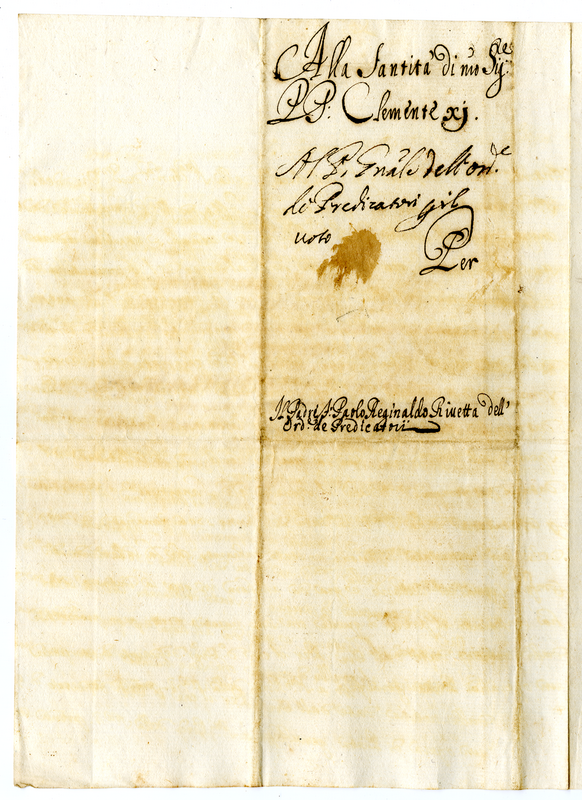 Alla Santità di nro Sigre
PP: Clemente xj.
Al P. Gnãle dell'ordе
de Predicatori p il
uoto
Per
Il Padre Fr Paolo Reginaldo Riuetta dell'
Ord: de Predicatori